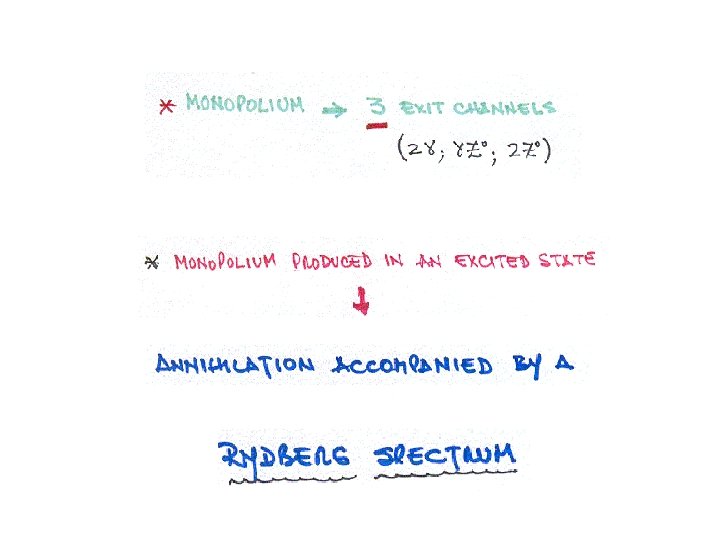 * MONOPOLIUM → 3 EXIT CHANNELS
(2γ; γZ°; 2Z°)
* MONOPOLIUM PRODUCED IN AN EXCITED STATE
↓
ANNIHILATION ACCOMPANIED BY A
RYDBERG SPECTRUM